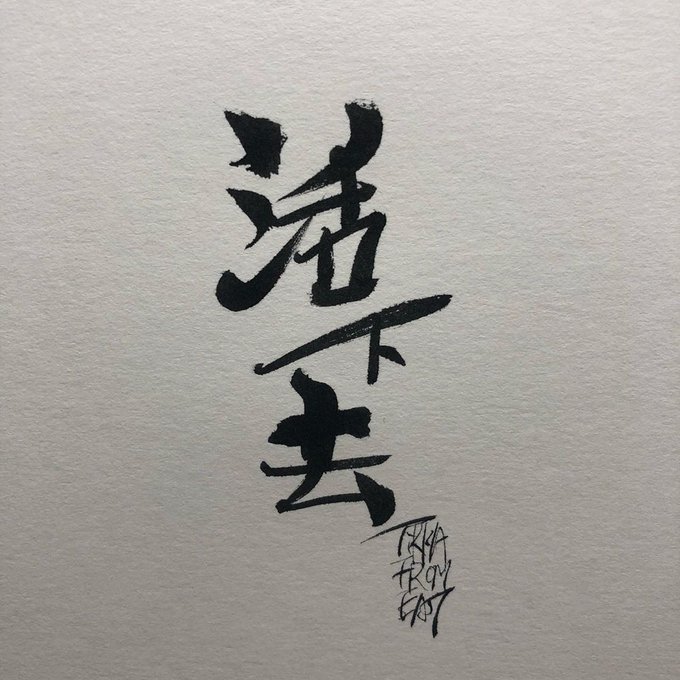 活下去
TIKKA
FROM
EAST